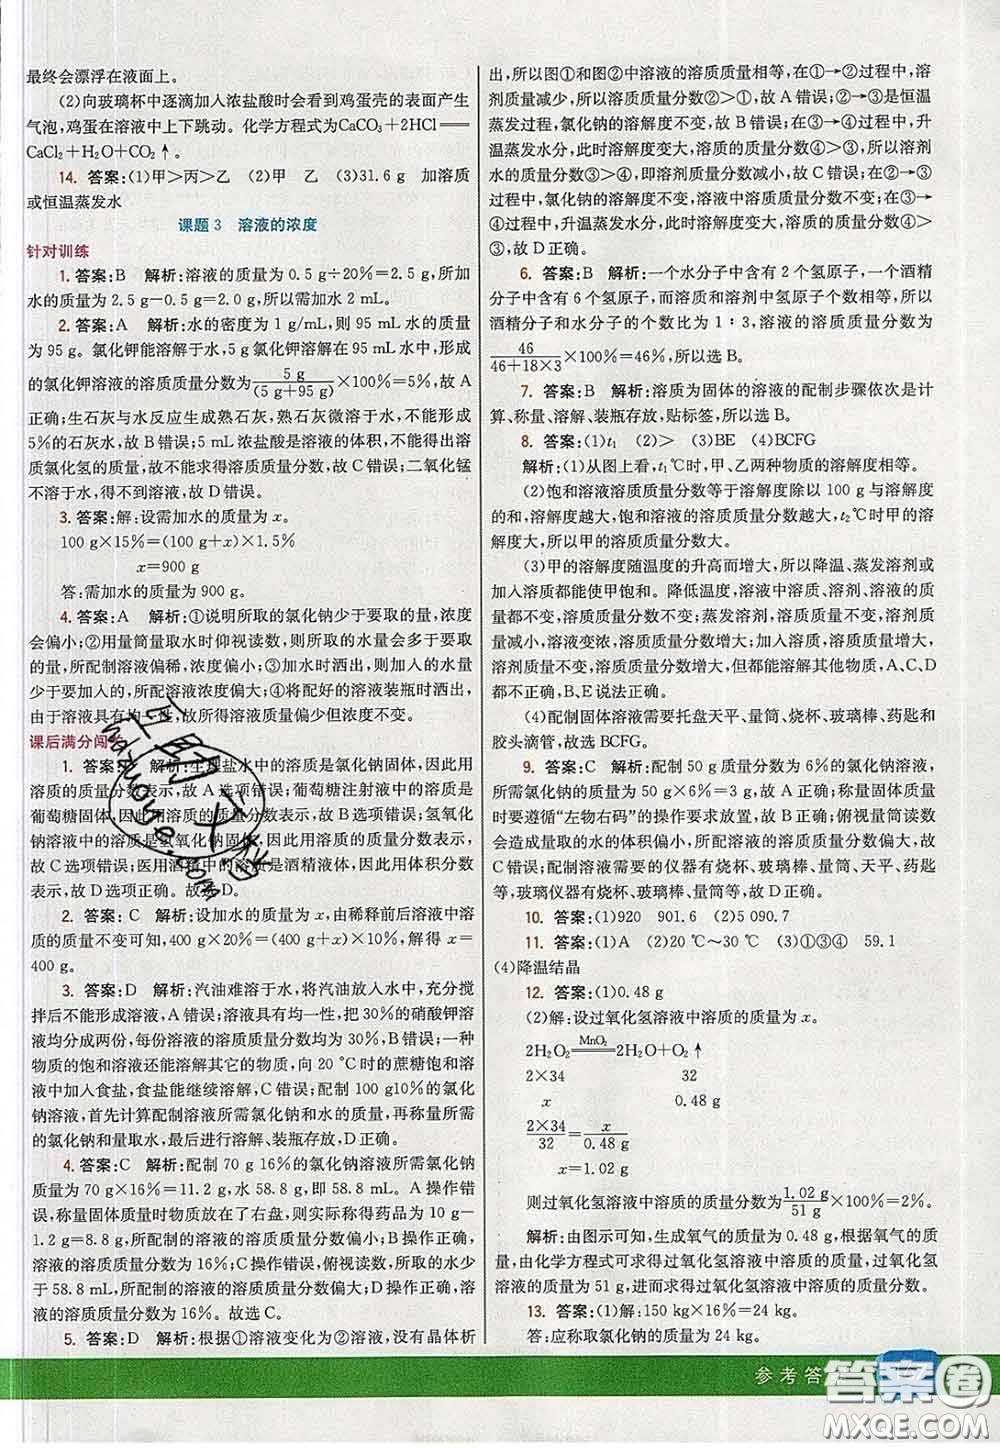 最终会漂浮在液面上。
(2)向玻璃杯中逐滴加入浓盐酸时会看到鸡蛋壳的表面产生
气泡,鸡蛋在溶液中上下跳动。化学方程式为CaCO₃+2HCl══
CaCl₂+H₂O+CO₂↑。
14. 答案:(1)甲>丙>乙 (2)甲 乙 (3)31.6 g 加溶质
或恒温蒸发水
课题 3 溶液的浓度
针对训练
1. 答案:B 解析:溶液的质量为 0.5 g÷20%=2.5 g,所加
水的质量为 2.5 g-0.5 g=2.0 g,所以需加水 2 mL。
2. 答案:A 解析:水的密度为 1 g/mL,则 95 mL 水的质量
为 95 g。氯化钾能溶解于水,5 g 氯化钾溶解在 95 mL 水中,形成
的氯化钾溶液的溶质质量分数为 5 g/(5 g+95 g)×100%=5%,故 A
正确;生石灰与水反应生成熟石灰,熟石灰微溶于水,不能形成
5%的石灰水,故 B 错误;5 mL 浓盐酸是溶液的体积,不能得出溶
质氯化氢的质量,故不能求得溶质质量分数,故 C 错误;二氧化锰
不溶于水,得不到溶液,故 D 错误。
3. 答案:解:设需加水的质量为 x。
100 g×15%=(100 g+x)×1.5%
x=900 g
答:需加水的质量为 900 g。
4. 答案:A 解析:①说明所取的氯化钠少于要取的量,浓度
会偏小;②用量筒量取水时仰视读数,则所取的水量会多于要取
的量,所配制溶液偏稀,浓度偏小;③加水时洒出,则加入的水量
少于要加入的,所配溶液浓度偏大;④将配好的溶液装瓶时洒出,
由于溶液具有均一性,故所得溶液质量偏少但浓度不变。
课后满分闯关
1. 答案: 解析:生理盐水中的溶质是氯化钠固体,因此用
溶质的质量分数表示,故 A 选项错误;葡萄糖注射液中的溶质是
葡萄糖固体,因此用溶质的质量分数表示,故 B 选项错误;氢氧化
钠溶液中的溶质是氢氧化钠固体,因此用溶质的质量分数表示,
故 C 选项错误;医用酒精中的溶质是酒精液体,因此用体积分数
表示,故 D 选项正确。故选 D。
2. 答案: C 解析:设加水的质量为 x,由稀释前后溶液中溶
质的质量不变可知,400 g×20%=(400 g+x)×10%,解得 x=
400 g。
3. 答案:D 解析:汽油难溶于水,将汽油放入水中,充分搅
拌后不能形成溶液,A 错误;溶液具有均一性,把 30%的硝酸钾溶
液均分成两份,每份溶液的溶质质量分数均为 30%,B 错误;一种
物质的饱和溶液还能溶解其它的物质,向 20 ℃时的蔗糖饱和溶
液中加入食盐,食盐能继续溶解,C 错误;配制 100 g10%的氯化
钠溶液,首先计算配制溶液所需氯化钠和水的质量,再称量所需
的氯化钠和量取水,最后进行溶解、装瓶存放,D 正确。
4. 答案:C 解析:配制 70 g 16%的氯化钠溶液所需氯化钠
质量为 70 g×16%=11.2 g,水 58.8 g,即 58.8 mL。A 操作错
误,称量固体质量时物质放在了右盘,则实际称得药品为 10 g-
1.2 g=8.8 g,所配制的溶液的溶质质量分数偏小;B 操作正确,
所配制溶液的质量分数为 16%;C 操作错误,俯视读数,所取的水少
于 58.8 mL,所配制的溶液的溶质质量分数偏大;D 操作正确,溶
液的溶质质量分数为 16%。故选 C。
5. 答案:D 解析:根据①溶液变化为②溶液,没有晶体析
出,所以图①和图②中溶液的溶质质量相等,在①→②过程中,溶
剂质量减少,所以溶质质量分数②>①,故 A 错误;②→③是恒温
蒸发过程,氯化钠的溶解度不变,故 B 错误;在③→④过程中,升
温蒸发水分,此时溶解度变大,溶质的质量分数④>③,所以溶剂
水的质量③>④,即溶剂质量分数减小,故 C 错误;①→②是恒温
蒸发过程,在②→③过程中,溶液中溶质的质量分数不变;在③
→④过程中,升温蒸发水分,此时溶解度变大,溶质的质量分数④>
③,故 D 正确。
6. 答案:B 解析:一个水分子中含有 2 个氢原子,一个酒精
分子中含有 6 个氢原子,而溶质和溶剂中氢原子个数相等,所以
酒精分子和水分子的个数比为 1∶3,溶液的溶质质量分数为
46/(46+18×3)×100%=46%,所以选 B。
7. 答案:B 解析:溶质为固体的溶液的配制步骤依次是计
算、称量、溶解、装瓶存放,贴标签,所以选 B。
8. 答案:(1)t₁ (2)> (3)BE (4)BCFG
解析:(1)从图上看,t₁℃时,甲、乙两种物质的溶解度相等。
(2)饱和溶液溶质质量分数等于溶解度除以 100 g 与溶解度
的和,溶解度越大,饱和溶液的溶质质量分数越大,t₂℃时甲的溶
解度大,所以甲的溶质质量分数大。
(3)甲的溶解度随温度的升高而增大,所以降温、蒸发溶剂或
加入溶质都能使甲饱和。降低温度,溶液中溶质、溶液、溶剂的质
量都不变,溶质质量分数不变;蒸发溶剂,溶质质量不变,溶剂
质量减小,溶液变浓,溶质质量分数增大;加入溶质,溶质质量增大,
溶剂质量不变,溶液质量分数增大,但都能变为饱和溶液,A、C、D
都不正确,B、E 说法正确。
(4)配制固体溶液需要托盘天平、量筒、烧杯、玻璃棒、药匙和
胶头滴管,故选 BCFG。
9. 答案:C 解析:配制 50 g 质量分数为 6%的氯化钠溶液,
所需的氯化钠的质量为 50 g×6%=3 g,故 A 正确;称量固体质量
时要遵循“左物右码”的操作要求放置,故 B 正确;俯视量筒读数
会造成量取的水的体积偏小,所配溶液的溶质质量分数偏大,故
C 错误;配制溶液需要的仪器有烧杯、玻璃棒、量筒、天平、药匙
等,玻璃仪器有烧杯、玻璃棒、量筒等,故 D 正确。
10. 答案:(1)920 901.6 (2)5 090.7
11. 答案:(1)A (2)20 ℃~30 ℃ (3)①③④ 59.1
(4)降温结晶
12. 答案:(1)0.48 g
(2)解:设过氧化氢溶液中溶质的质量为 x。
2H₂O₂ ══MnO₂══ 2H₂O+O₂↑
2×34 32
x 0.48 g
2×34/32 = x/0.48 g
x=1.02 g
则过氧化氢溶液中溶质的质量分数为 1.02 g/51 g ×100%=2%。
解析:由图示可知,生成氧气的质量为 0.48 g,氧气的质
量,由化学方程式可求得过氧化氢溶液中溶质的质量;过氧化氢
溶液的质量为 51 g,进而求得过氧化氢溶液中溶质的质量分数。
13. 答案:(1)解:150 kg×16%=24 kg。
答:应称取氯化钠的质量为 24 kg。
参考答
答案圈
MXQE.COM